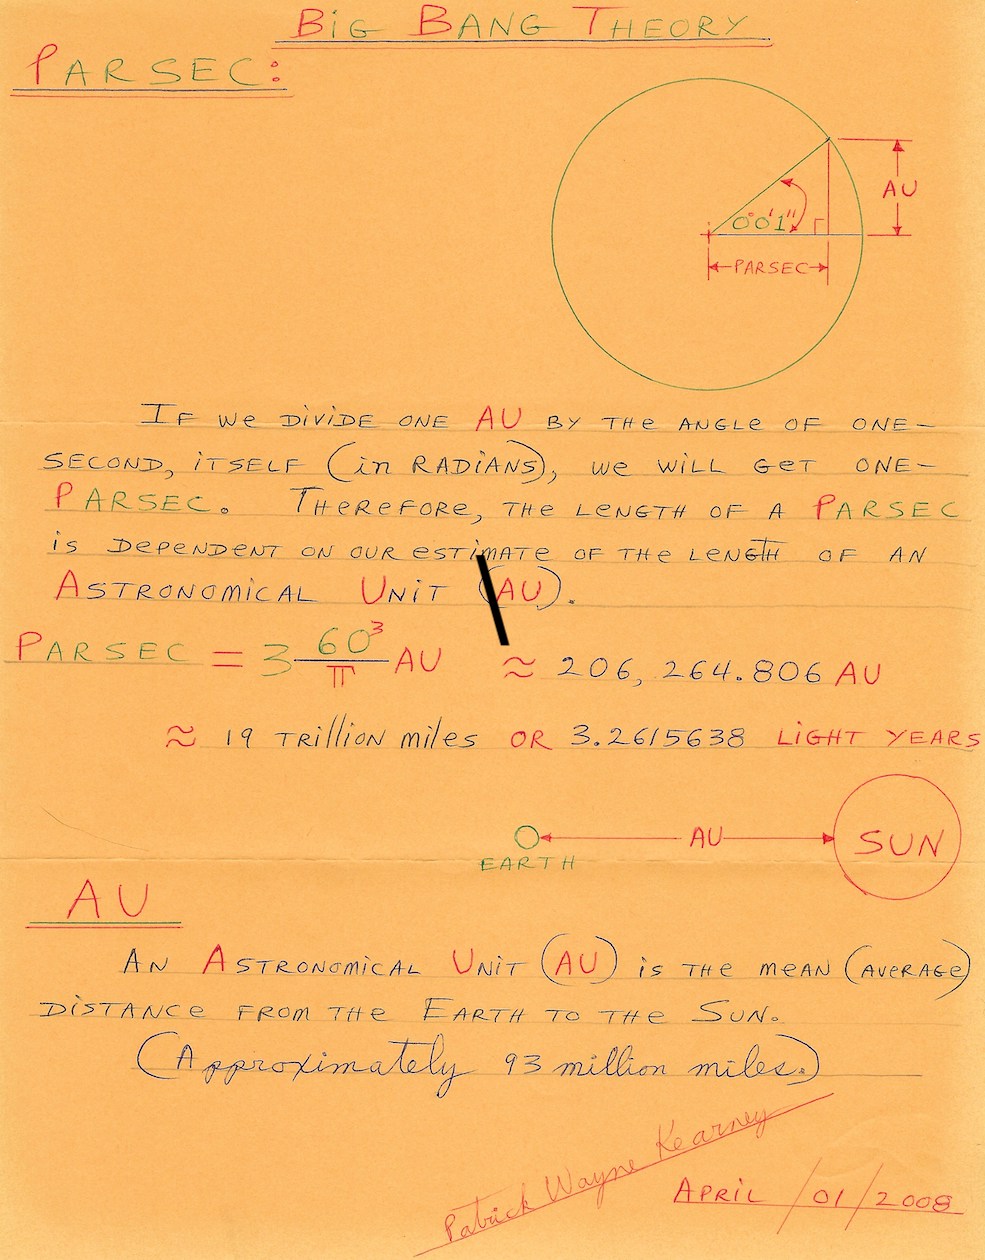 BiG BANG THEORY
PARSEC:
AU
0°0'1"
PARSEC
IF we DiViDE ONE AU BY THe ANGLe OF ONE-
SECOND, iTSELF (in RADIANS), we WiLL GeT ONE-
PARSEC. THeReFORe, THe LeNGTH OF A PARSEC
is DePeNDeNT ON OUR eSTiMATe OF THe LeNGTH OF AN
ASTRONOMiCAL UNiT (AU).
PARSEC = 3 60³/π AU ≈ 206, 264.806 AU
≈ 19 TRillION miles OR 3.2615638 LiGHT YEARS
AU
EARTH
SUN
AU
AN ASTRONOMiCAL UNiT (AU) is THe meAN (AVERAGe)
DiSTANCe FROM THe EARTH TO THe SUN.
(Approximately 93 million miles.)
Patrick Wayne Kearney
APRiL /01/2008